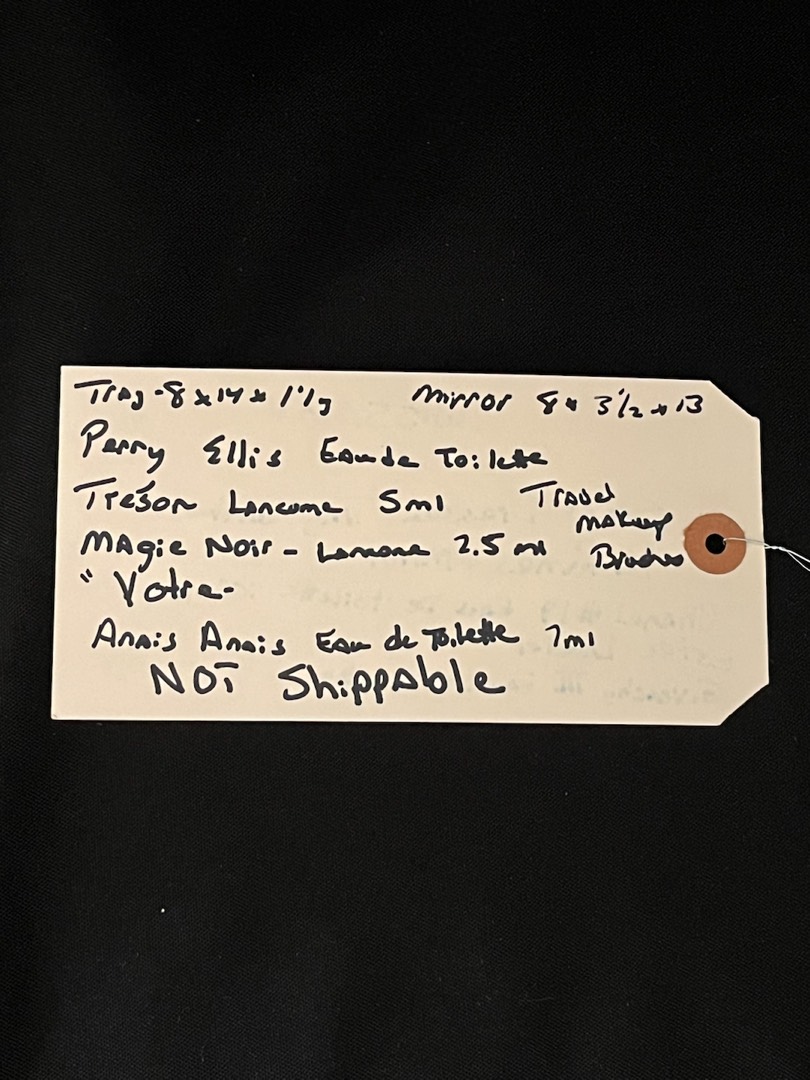 Tray - 8 x 14 x 1 1/2 Mirror 8 x 3 1/2 x 13
Perry Ellis Eau de Toilette
Trésor Lancome 5ml Travel
makeup
Magie Noir - Lancome 2.5 ml Brushes
" Votre -
Anais Anais Eau de Toilette 7ml
NOT Shippable